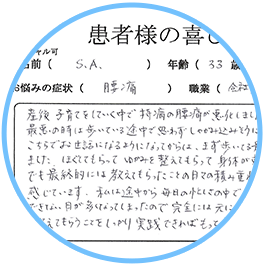 患者様の喜び
ャル可
名前（ S.A. ） 年齢（ 33 歳
お悩みの症状（ 腰痛 ） 職業（ 会社
産後 子育てをしていく中で 持病の腰痛が悪化しまし
最悪の時は歩いている途中で思わずしゃがみ込みそうに
こちらでお世話になるようになってからは、まず歩いてる
ました。ほぐしてもらって ゆがみを整えもらって 身体が
でも最終的には 教えてもらったことの日々の積み重ね
感じています。私は途中から 毎日の忙しさの中で
できない日が多くなってしまったので 完全には元に
えてもらうことをしっかり 実践できればもっ